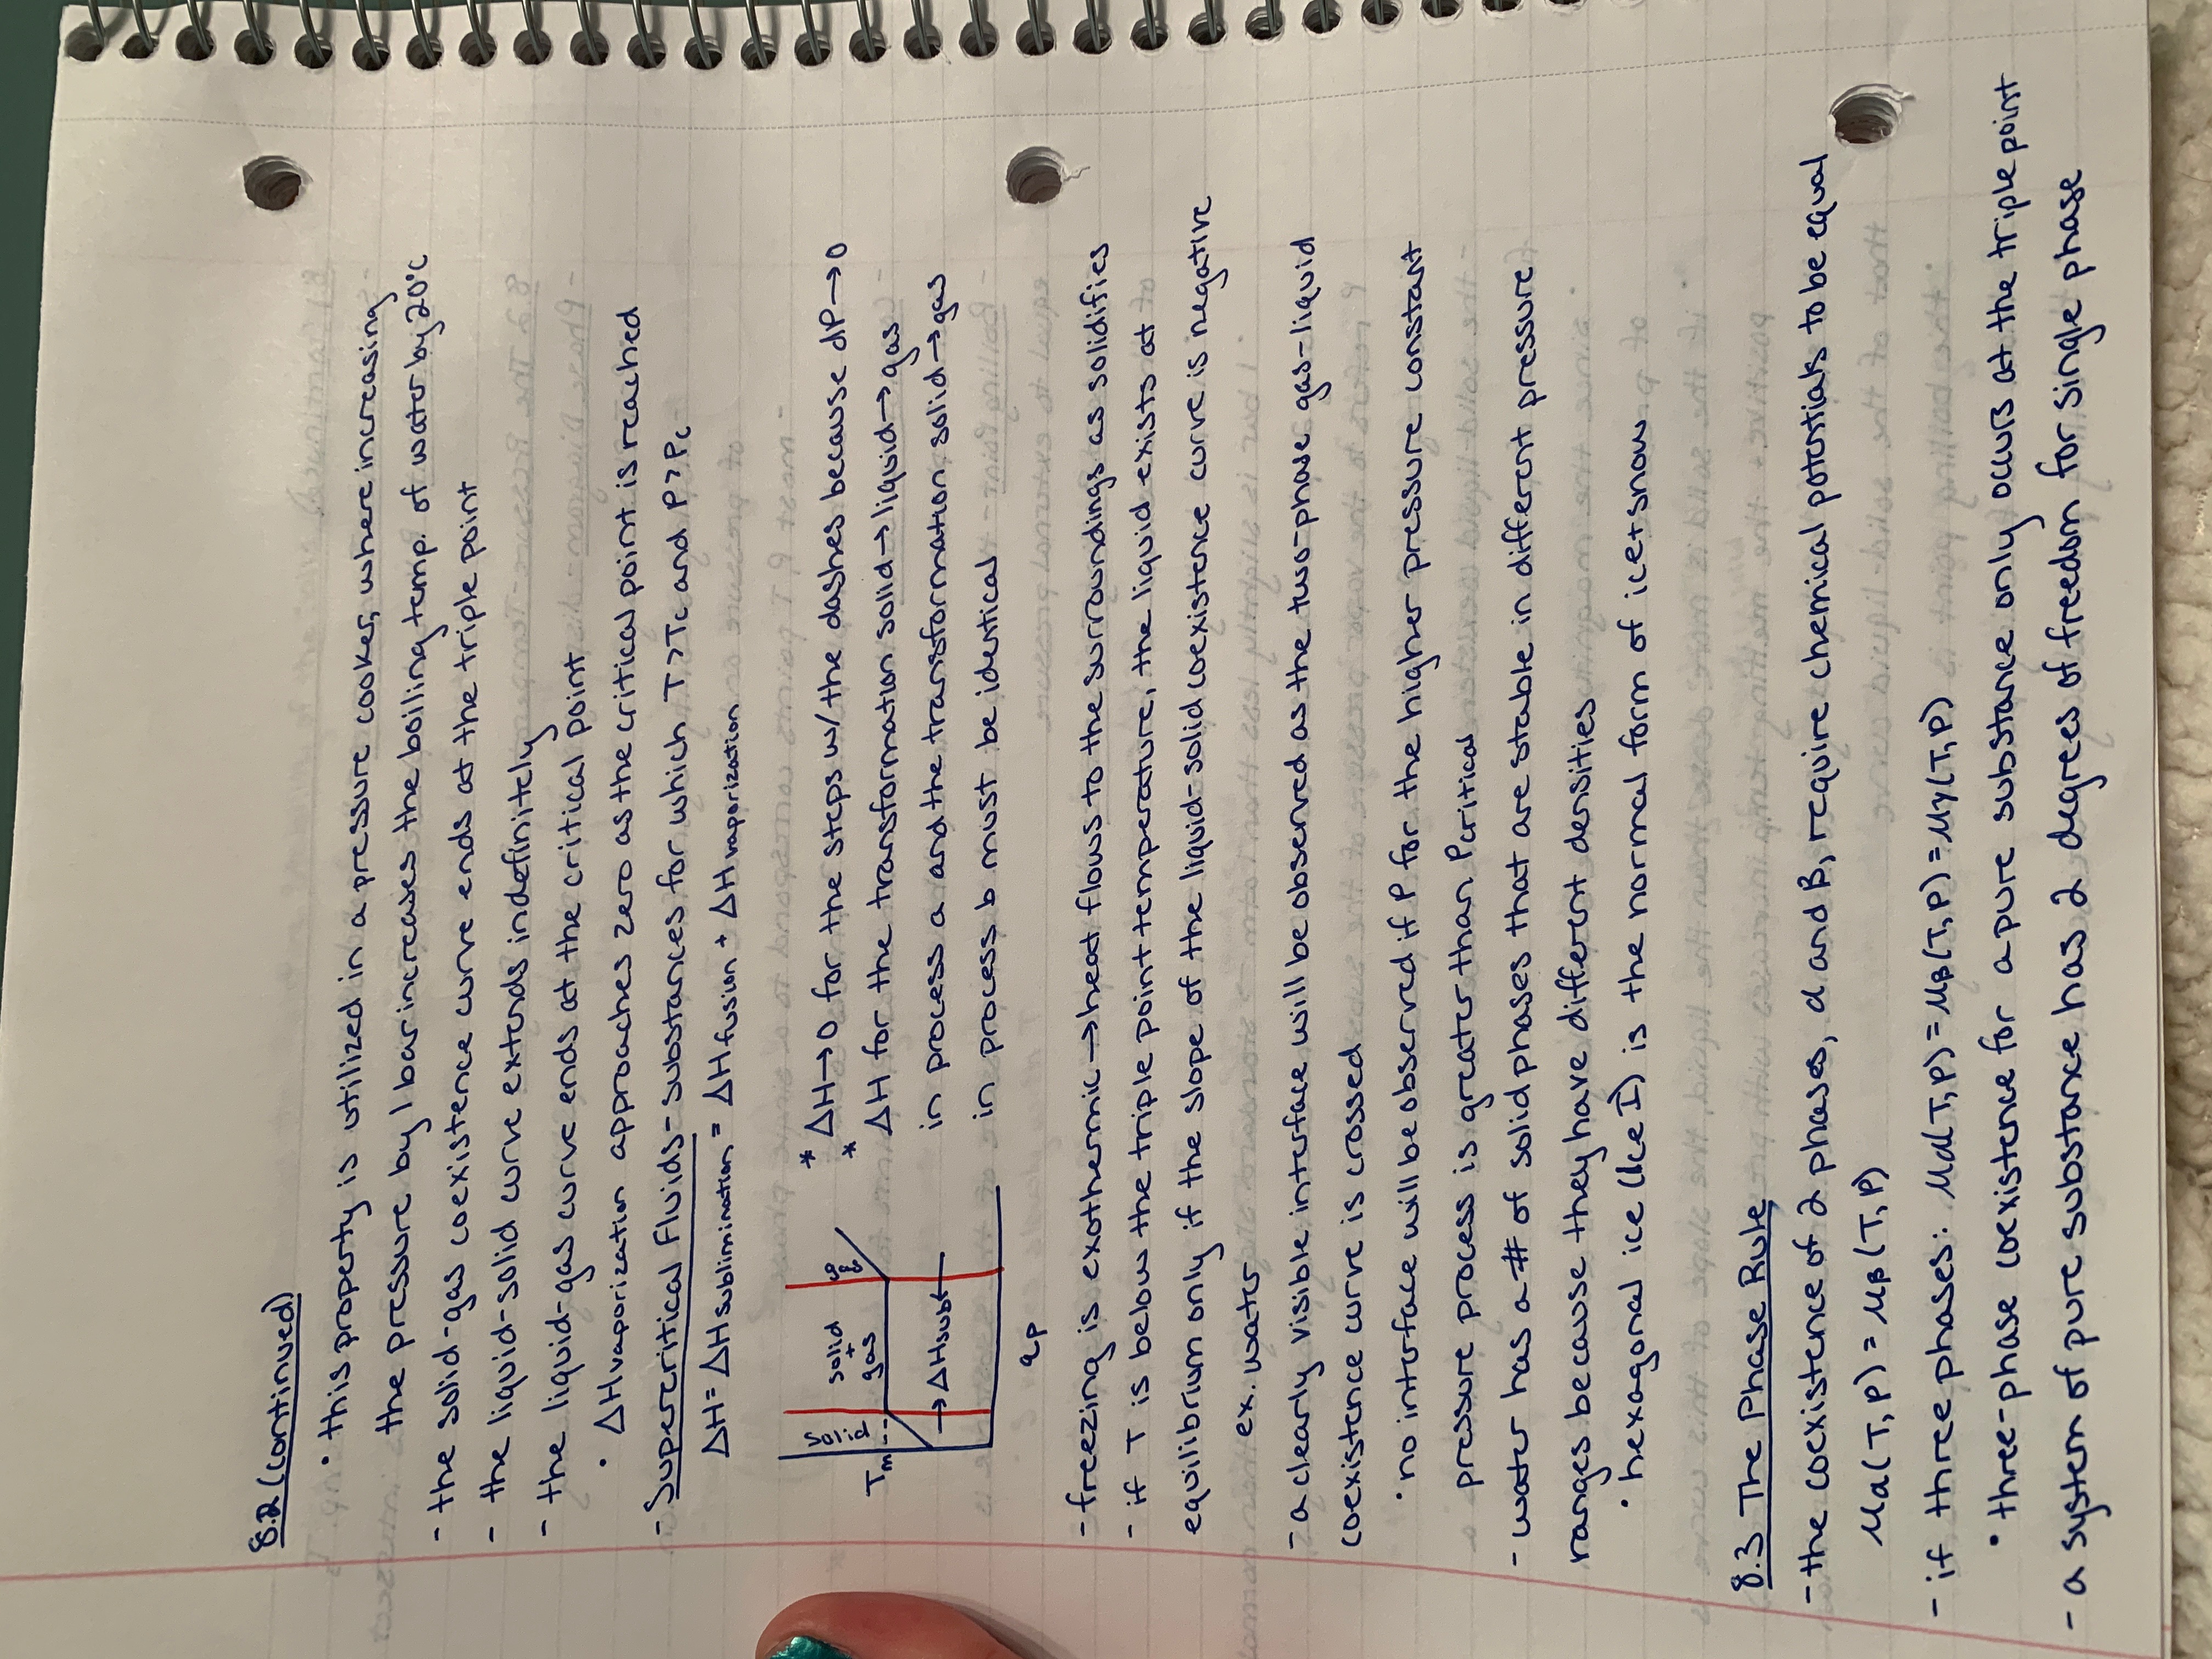 8.2 (continued)
• this property is utilized in a pressure cooker, where increasing
the pressure by 1 bar increases the boiling temp. of water by 20°C
- the solid-gas coexistence curve ends at the triple point
- the liquid-solid curve extends indefinitely
- the liquid-gas curve ends at the critical point
• ΔHvaporization approaches zero as the critical point is reached
- Supercritical Fluids - substances for which T > Tc and P > Pc
ΔH = ΔHsublimination = ΔHfusion + ΔHvaporization
solid
solid
+
gas
gas
Tm
→ ΔHsub ←
qp
* ΔH → 0 for the steps w/ the dashes because dP → 0
* ΔH for the transformation solid → liquid → gas
in process a and the transformation solid → gas
in process b must be identical
- freezing is exothermic → heat flows to the surroundings as solidifies
- if T is below the triple point temperature, the liquid exists at
equilibrium only if the slope of the liquid-solid coexistence curve is negative
ex. water
- a clearly visible interface will be observed as the two-phase gas-liquid
coexistence curve is crossed
• no interface will be observed if P for the higher pressure constant
pressure process is greater than Pcritical
- water has a # of solid phases that are stable in different pressure
ranges because they have different densities
• hexagonal ice (Ice I) is the normal form of ice + snow
8.3 The Phase Rule
- the coexistence of 2 phases, α and β, require chemical potentials to be equal
μα(T, P) = μβ(T, P)
- if three phases: μα(T, P) = μβ(T, P) = μγ(T, P)
• three-phase coexistence for a pure substance only occurs at the triple point
- a system of pure substance has 2 degrees of freedom for single phase